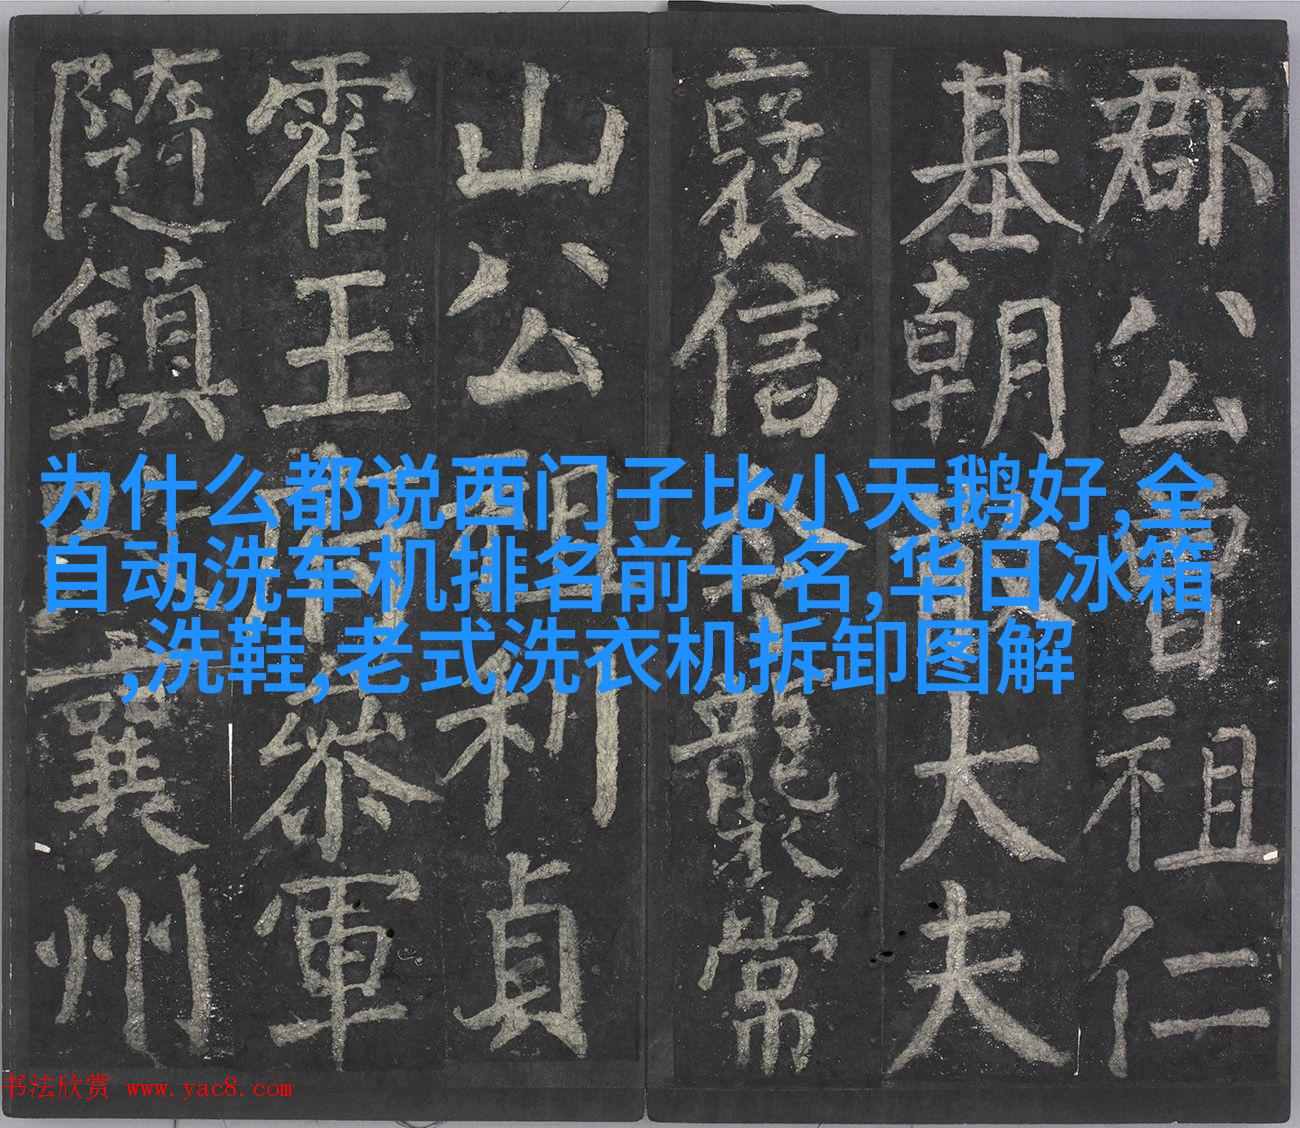 郡公曾祖仁
基朝散大夫
襃信令襲常
山公祖利貞
霍王府參軍
隨鎮改襄州
为什么都说西门子比小天鹅好,全
自动洗车机排名前十名,华日冰箱
,洗鞋,老式洗衣机拆卸图解
书法欣赏 www.yac8.com